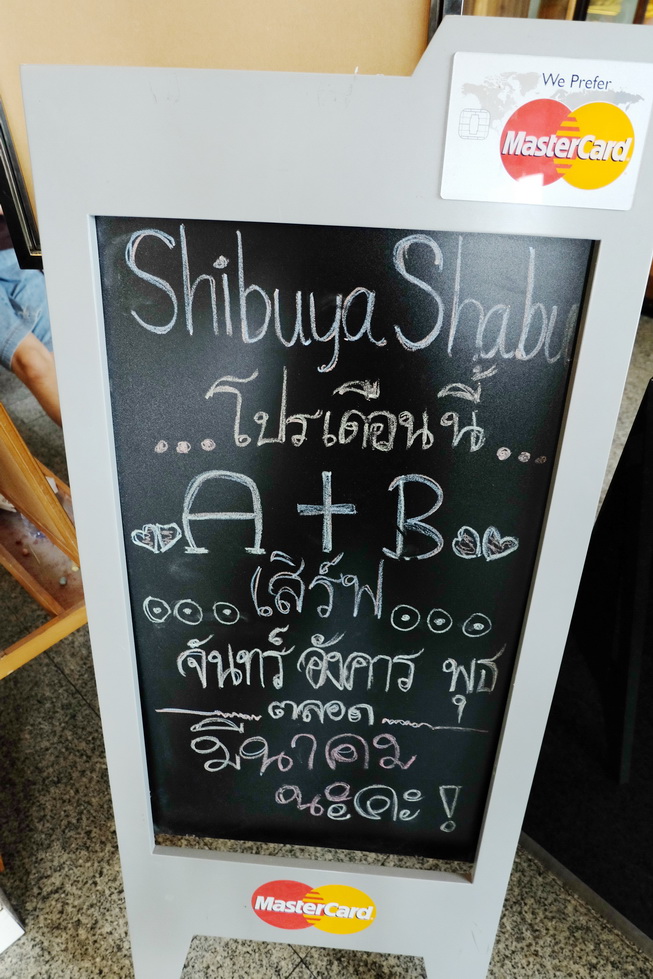 We Prefer
MasterCard
Shibuya Shabu
...โปรเดือนนี้...
A + B
เสิร์ฟ
จันทร์ อังคาร พุธ
ตลอด
มีนาคม
นะคะ!
MasterCard